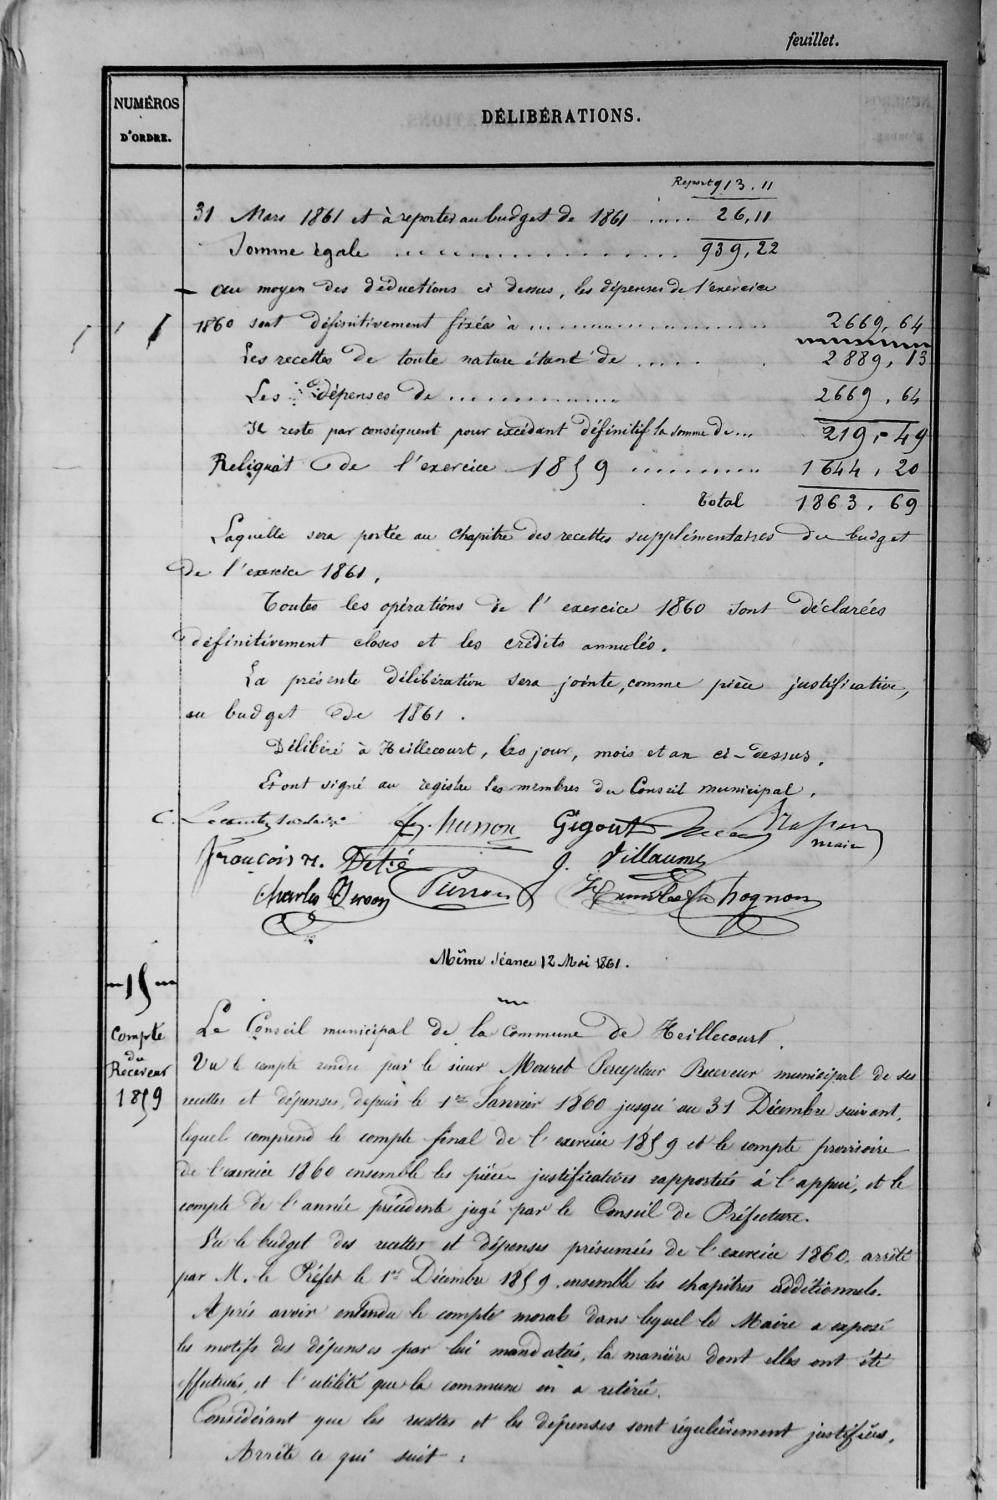 feuillet.
NUMÉROS
D'ORDRE.
DÉLIBÉRATIONS.
Report 913.11
31 Mars 1861 et à reporter au budget de 1861 ..... 26,11
Somme égale ................ 939,22
au moyen des déductions ci dessus, les dépenses de l'exercice
1860 sont définitivement fixées à .................. 2669,64
Les recettes de toute nature étant de ..... 2889,13
Les dépenses de ............. 2669,64
Il reste par conséquent pour excédant définitif la somme de ... 219,49
Reliquat de l'exercice 1859 ......... 1644,20
Total 1863,69
Laquelle sera portée au Chapitre des recettes supplémentaires du budget
de l'exercice 1861,
Toutes les opérations de l'exercice 1860 sont déclarées
définitivement closes et les crédits annulés.
La présente délibération sera jointe, comme pièce justificative,
au budget de 1861.
Délibéré à Heillecourt, les jour, mois et an ci-dessus,
Et ont signé au registre les membres du Conseil municipal,
C. husson Gigout
maire
François N. Détié J. Villaume
Charles Pierron Hognon
Même Séance 12 Mai 1861.
15
Compte
du
Receveur
1859
Le Conseil municipal de la Commune de Heillecourt.
Vu le compte rendu par le sieur Mouret Percepteur Receveur municipal de ses
recettes et dépenses, depuis le 1er Janvier 1860 jusqu'au 31 Décembre suivant,
lequel comprend le compte final de l'exercice 1859 et le compte provisoire
de l'exercice 1860 ensemble les pièces justificatives rapportées à l'appui, et le
compte de l'année précédente jugé par le Conseil de Préfecture.
Vu le budget des recettes et dépenses présumées de l'exercice 1860, arrêté
par M. le Préfet le 1er Décembre 1859 ensemble les chapitres additionnels.
Après avoir entendu le compte moral dans lequel le Maire a exposé
les motifs des dépenses par lui mandatées, la manière dont elles ont été
effectuées, et l'utilité que la commune en a retirée.
Considérant que les recettes et les dépenses sont régulièrement justifiées,
Arrête ce qui suit :